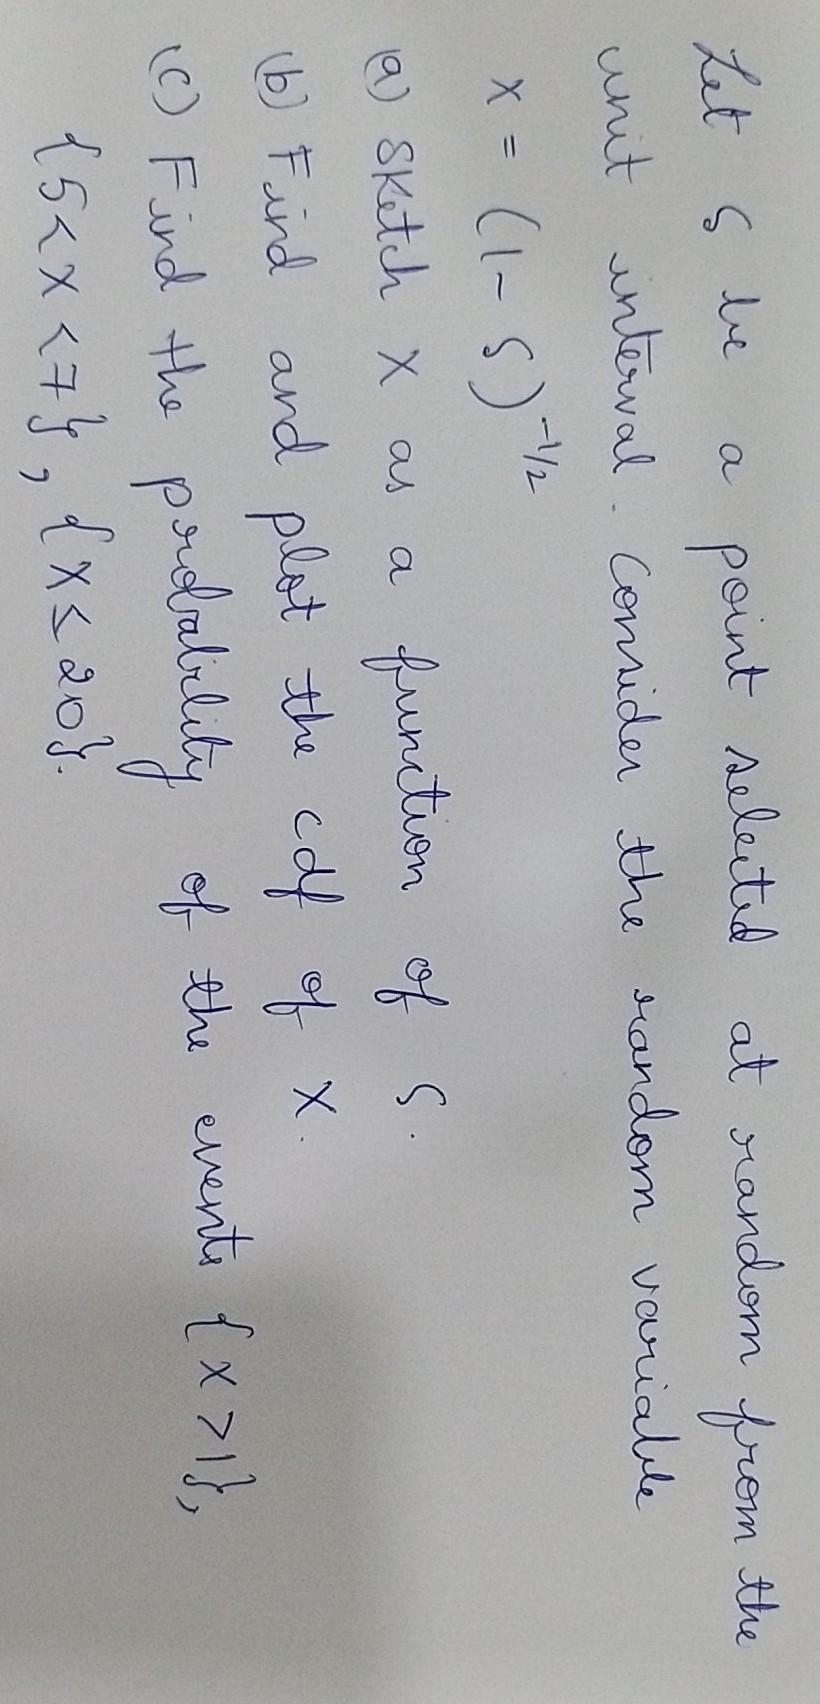 Let ζ be a point selected at random from the
unit interval. Consider the random variable
X = (1 - ζ)^-1/2
(a) Sketch X as a function of ζ.
(b) Find and plot the cdf of X.
(c) Find the probability of the events {X > 1},
{5 < X < 7}, {X ≤ 20}.